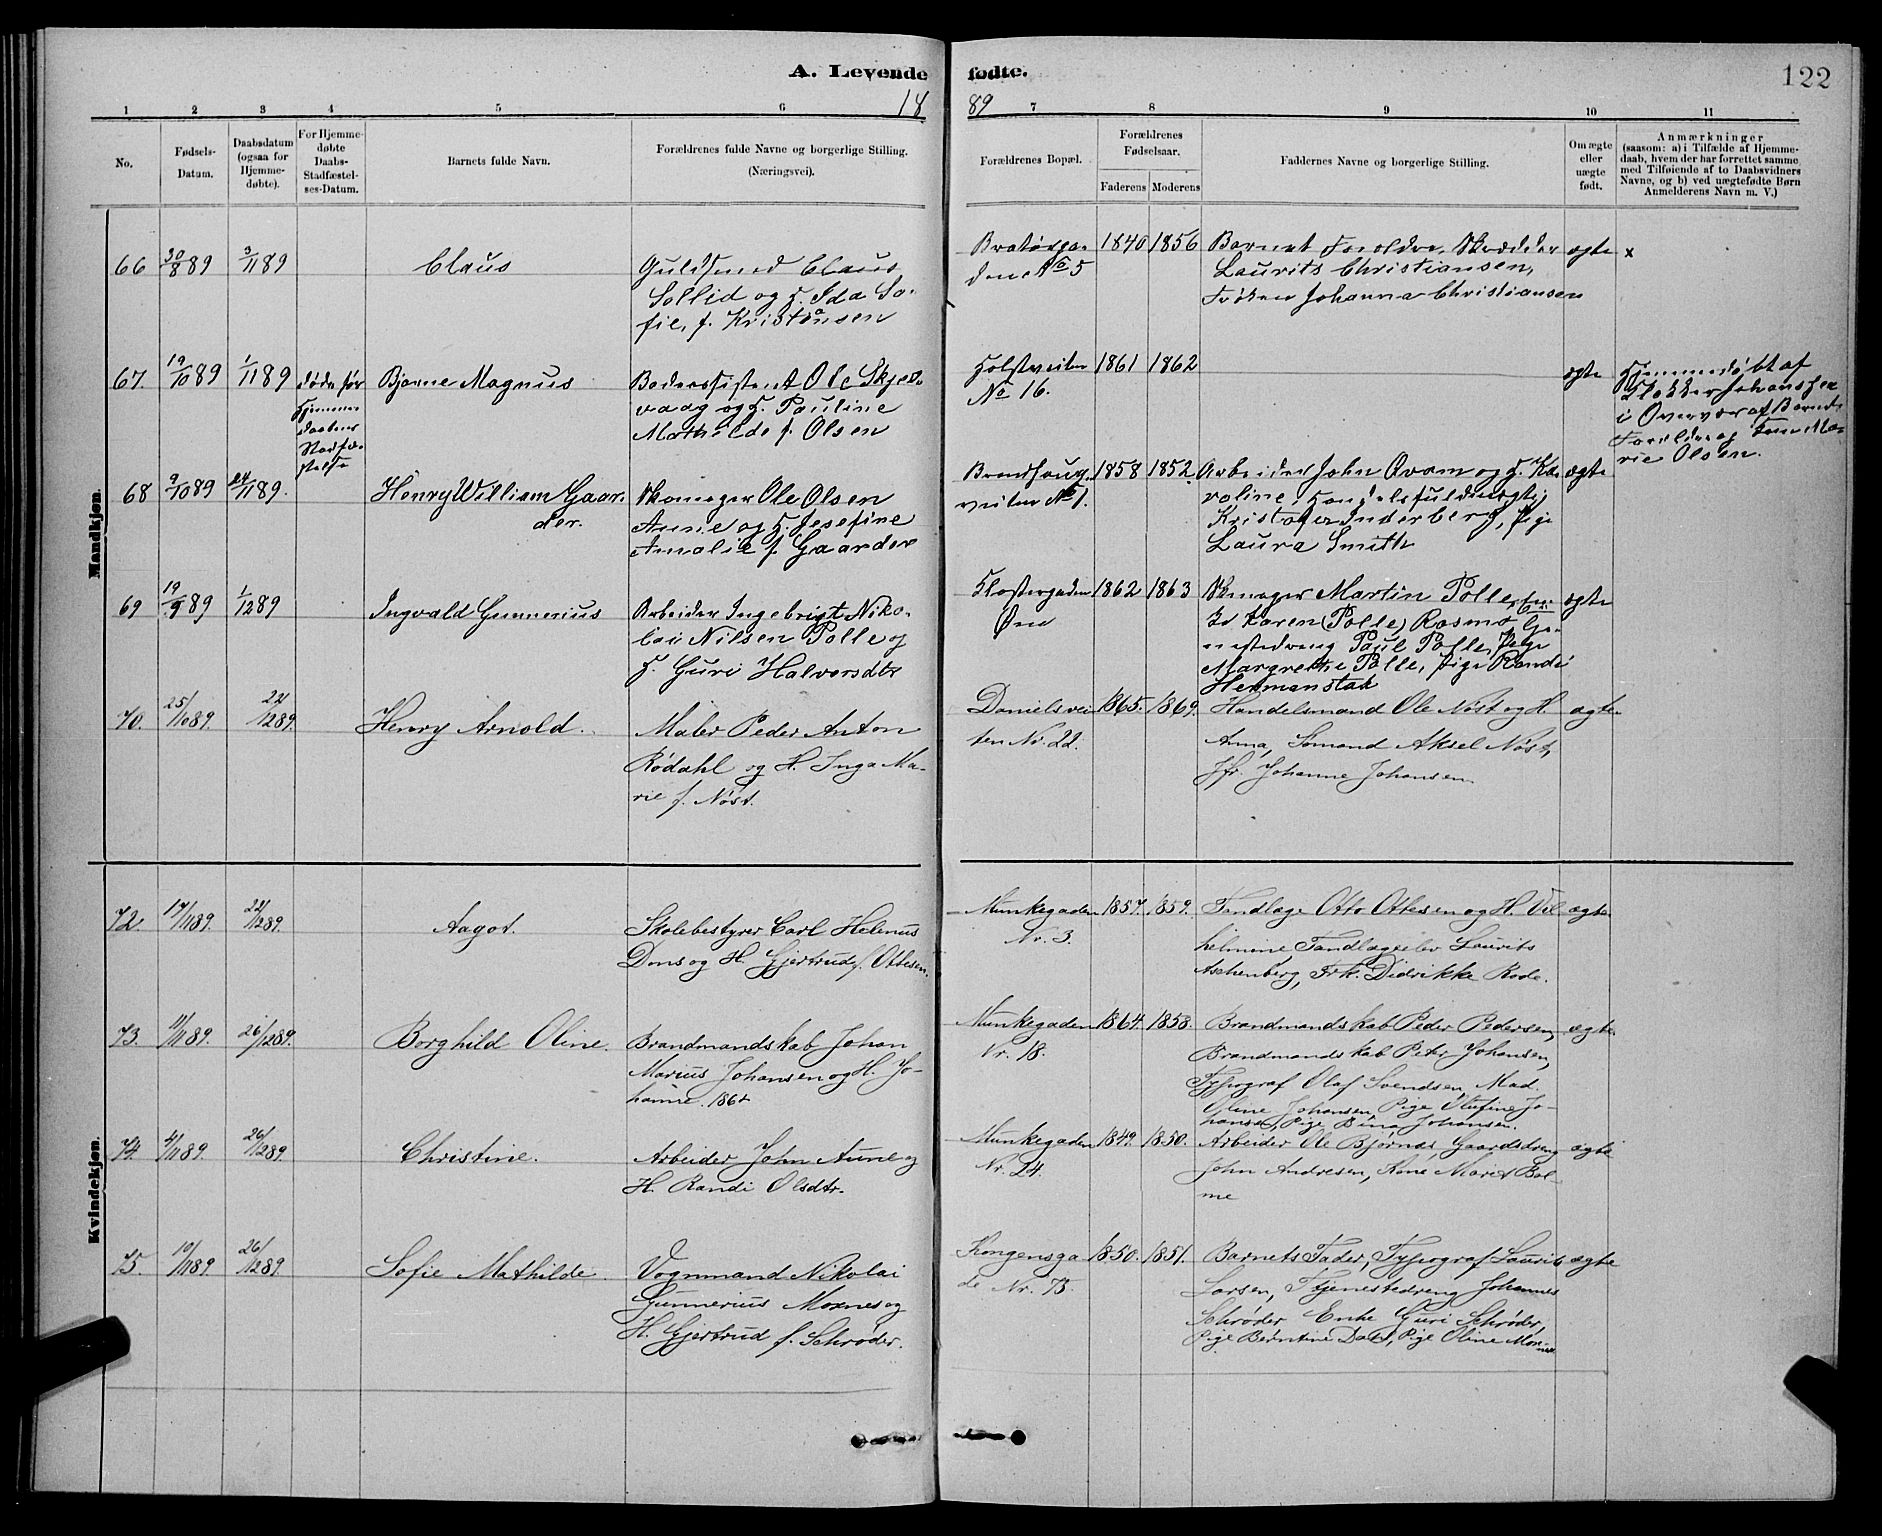 A. Levende fødte.
122
18 89
1 2 3 4 5 6 7 8 9 10 11
No.
Fødsels-Datum.
Daabsdatum (ogsaa for Hjemme-døbte).
For Hjemme-døbte Daabs-Stadfæstel-ses-Datum.
Barnets fulde Navn.
Forældrenes fulde Navne og borgerlige Stilling.
(Næringsvei).
Forældrenes Bopæl.
Forældrenes Fødselsaar.
Faderens Moderens
Faddernes Navne og borgerlige Stilling.
Om ægte eller uægte født.
Anmærkninger
(saasom: a) i Tilfælde af Hjemme-
daab, hvem der har forrettet samme,
med Tilføiende af to Daabsvidners
Navne, og b) ved uægtefødte Børn
Anmelderens Navn m. V.)
Mandkjøn.
66 30/8 89 3/11 89 Claus
Guldsmed Claus
Sollid og H. Ida So-
fie, f. Kristiansen
Bratørga-
den No 5
1840 1856
Barnets Forældre, Skrædder
Laurits Christiansen,
Frøken Johanna Christiansen
ægte x
67. 19/10 89 1/11 89
døde før
Hjemme
daabens
Stadfæ-
stelse
Bjarne Magnus
Ole Skjel-
vaag og H. Pauline
Mathilde f. Olsen
Holstveiten
No 16.
1861 1862
ægte
Hjemmedøbt af
i Overvær af Barnets
Forældre og Marie Olsen.
68 9/10 89 24/11 89.
Henry William Gaar-
der.
Skomager Ole Olsen
Aune og H. Josefine
Amalie f. Gaarder
veiten No 1.
1858 1852
Arbeider John Qvam og H. Ka-
roline, Handelsfuldmægtig
Kristofer Inderberg, Pige
Laura Smith
ægte
69 19/9 89 1/12 89
Ingvald Gunnerius
Arbeider Ingebrigt Niko-
lai Nilsen Polle og
H. Guri Halvorsdtr
Klostergaden
Øvre
1862 1863
Skomager Martin Polle,
Karen (Polle) Rosmo,
Paul Polle, Pige
Margrethe Polle, Pige Randi
Hermanstad
ægte
70. 25/10 89. 22/12 89.
Henry Arnold.
Maler Peder Anton
Rødahl og H. Inga Ma-
rie f. Nøst.
Danielsvei-
ten Nr. 22.
1865. 1869.
Handelsmand Ole Nøst og H.
Anna, Sømand Aksel Nøst,
Jfr. Johanne Johansen
ægte
Kvindekjøn.
72. 17/11 89. 22/12 89.
Aagot.
Skolebestyrer Carl Helenus
Dons og H. Gjertrud f. Ottesen.
Munkegaden
Nr. 3.
1857. 1859.
Tandlæge Otto Ottesen og H. Vil-
helmine, Tandlægeelev Laurits
Aschenberg, Frk. Didrikke Rode.
ægte
73. 11/11 89. 26/12 89.
Borghild Oline.
Brandmandskab Johan
Marius Johansen og H. Jo-
hanne. 1864
Munkegaden
Nr. 18.
1864 1858.
Brandmandskab Peder Pedersen,
Brandmandskab Peter Johansen,
Typograf Olaf Svendsen, Mad.
Oline Johansen, Pige Olufine Jo-
hansen, Pige Bina Johansen.
ægte
74. 4/11 89. 26/12 89.
Christine.
Arbeider John Aune og
H. Randi Olsdtr.
Munkegaden
Nr. 24.
1849. 1850.
Arbeider Ole Bjørnes, Gaardsdreng
John Andresen, Kone Marit Bol-
me
ægte
75. 10/11 89. 26/12 89.
Sofie Mathilde.
Vognmand Nikolai
Gunnerius Moxnes og
H. Gjertrud f. Schrøder.
Kongensga-
de Nr. 73.
1850. 1851.
Barnets Fader, Typograf Laurits
Larsen, Tjenestedreng Johannes
Schrøder, Enke Guri Schrøder,
Pige Berntine Dahl, Pige Oline Moxnes
ægte